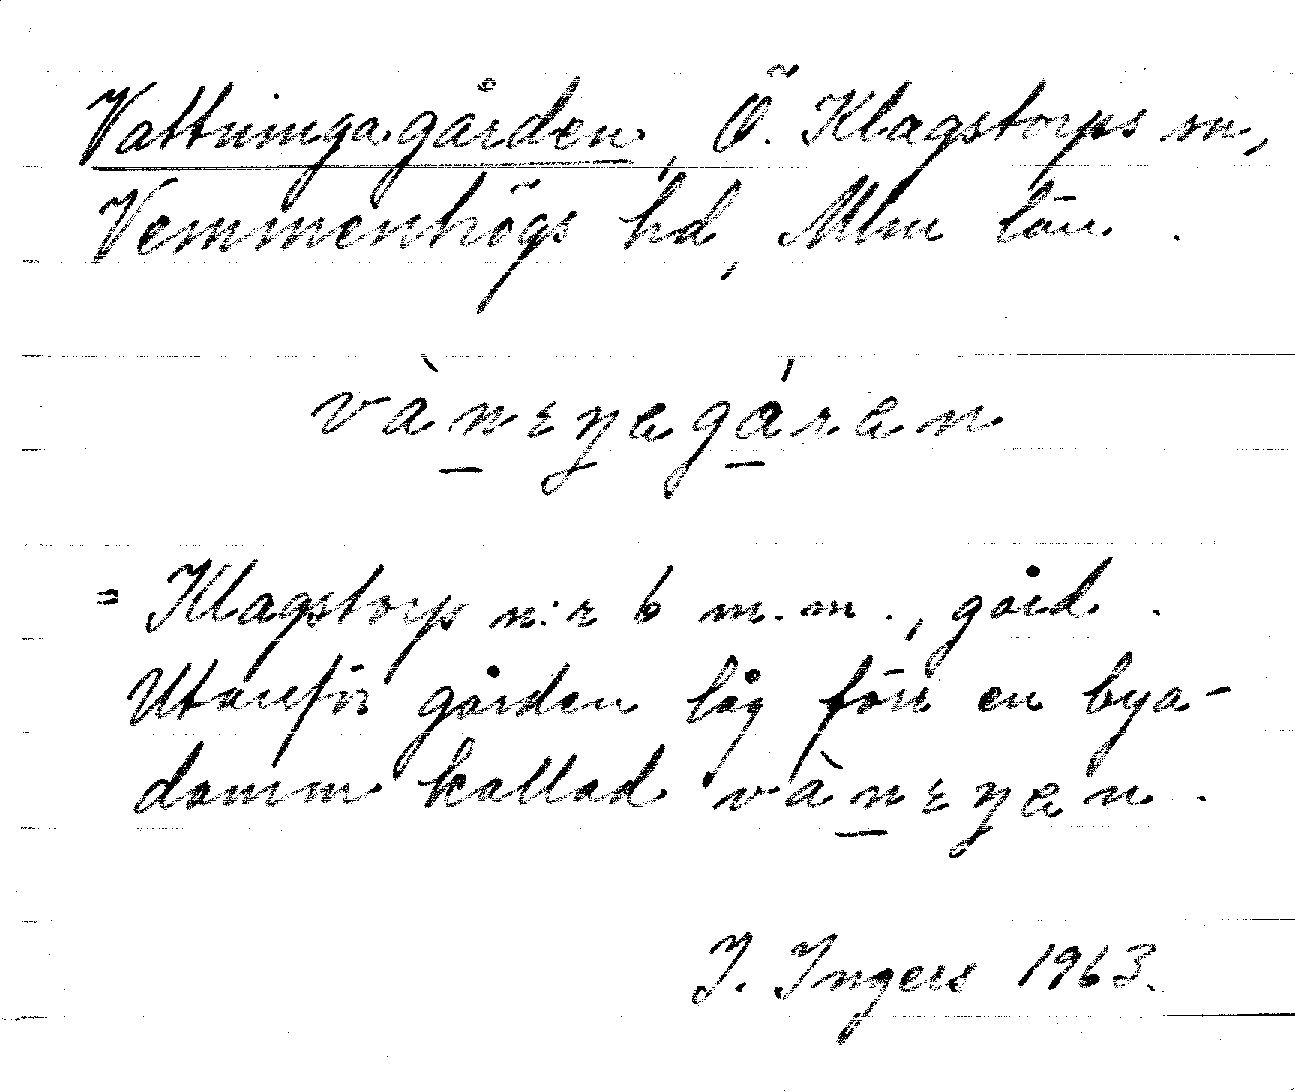 Vattningagården, Ö. Klagstorps sn,
Vemmenhögs hd, Mlm län.
vànɛŋagáran
= Klagstorps n:r 6 m.m., gård.
Utanför gården låg förr en bya-
damm kallad vànɛŋan.
I. Ingers 1963.